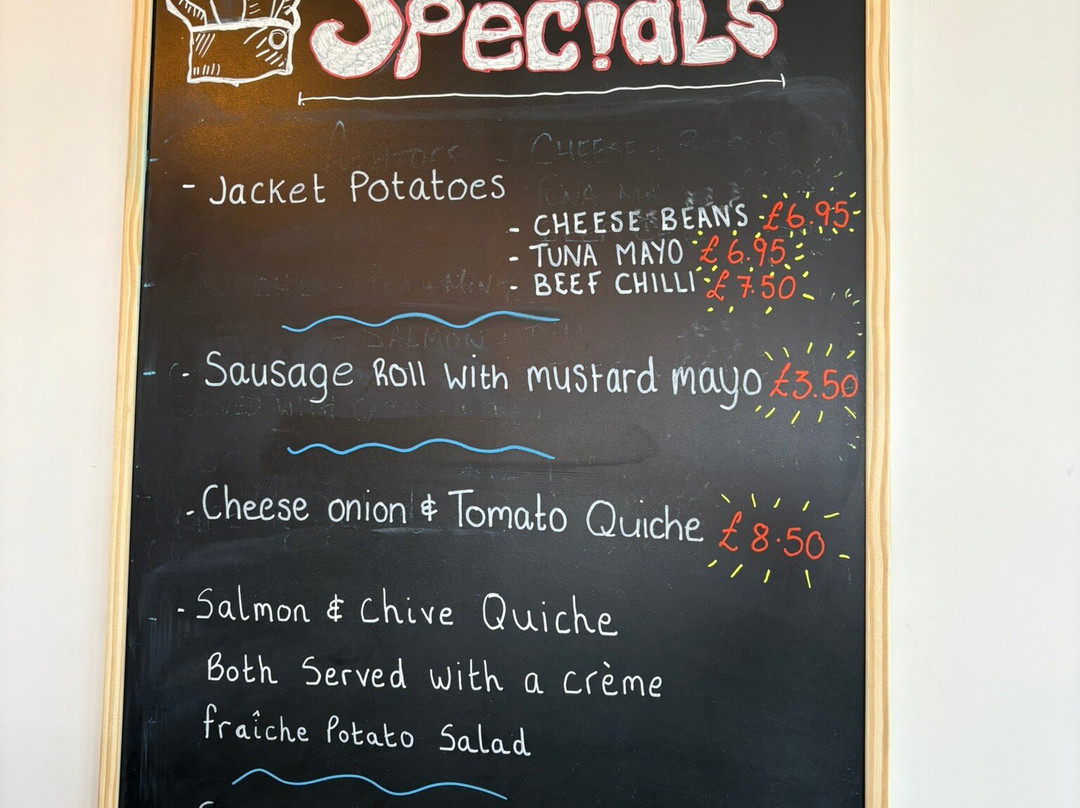 Specials
- Jacket Potatoes
- CHEESE BEANS £6.95
- TUNA MAYO £6.95
- BEEF CHILLI £7.50
- Sausage Roll with mustard mayo £3.50
- Cheese onion & Tomato Quiche £8.50
- Salmon & Chive Quiche
Both Served with a crème
fraîche Potato Salad